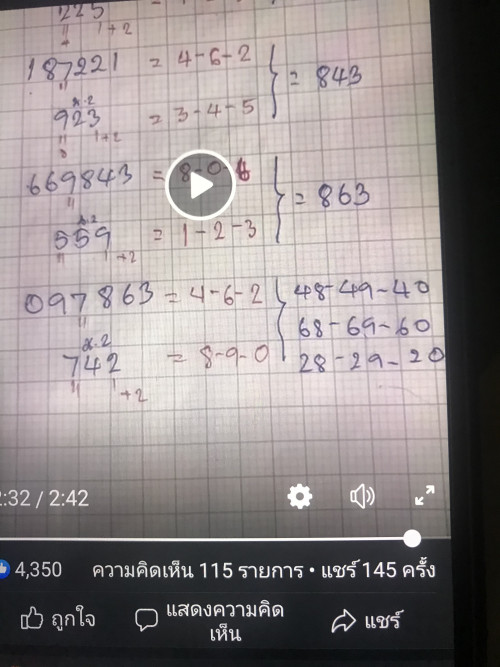 225
" 1+2
187221 = 4-6-2
" x.2
= 843
923 = 3-4-5
" 1+2
669843 = 8-0-6
" x.2
= 863
559 = 1-2-3
" +2
097863 = 4-6-2
48-49-40
" x.2
68-69-60
742 = 8-9-0
28-29-20
" 1+2
2:32 / 2:42
4,350 ความคิดเห็น 115 รายการ • แชร์ 145 ครั้ง
ถูกใจ
แสดงความคิด
เห็น
แชร์